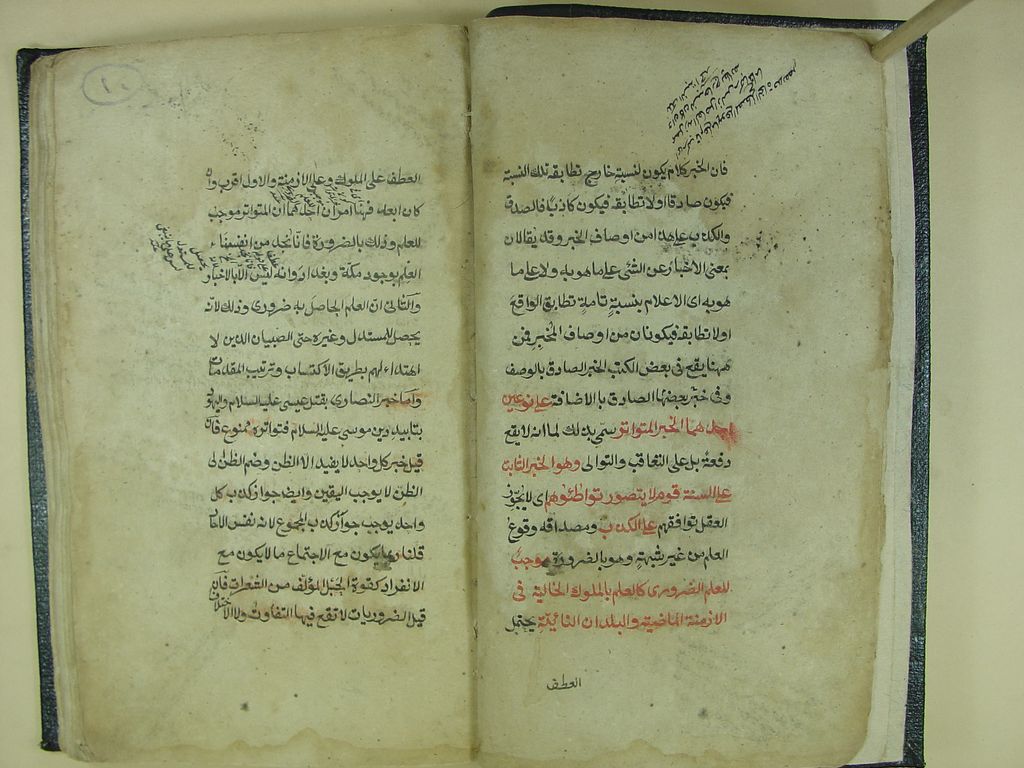 فان الخبر كلام يكون لنسبته خارج تطابقه تلك النسبة
فيكون صادقا او لا تطابقه فيكون كاذبا فالصدق
والكذب على هذا من اوصاف الخبر وقد يقالان
بمعنى الاخبار عن الشئ على ما هو به ولا على ما
هو به اى الاعلام بنسبة تامة تطابق الواقع
او لا تطابقه فيكونان من اوصاف المخبر فمن
ههنا يقع فى بعض الكتب الخبر الصادق بالوصف
وفى بعضها خبر الصادق بالاضافة على نوعين
احدهما الخبر المتواتر سمى بذلك لما انه لا يقع
دفعة بل على التعاقب والتوالى وهو الخبر الثابت
على السنة قوم لا يتصور تواطئوهم اى لا يجوز
العقل توافقهم على الكذب ومصداقه وقوع
العلم من غير شبهة وهو بالضرورة موجب
للعلم الضرورى كالعلم بالملوك الخالية فى
الازمنة الماضية والبلدان النائية يحتمل
العطف
١٠
العطف على الملوك وعلى الازمنة والاول اقرب وان
كان ابعد فههنا امران احدهما ان المتواتر موجب
للعلم وذلك بالضرورة فانا نجد من انفسنا
العلم بوجود مكة وبغداد وانه ليس الا بالاخبار
والثانى ان العلم الحاصل به ضرورى وذلك لانه
يحصل للمستدل وغيره حتى الصبيان الذين لا
اهتداء لهم بطريق الاكتساب وترتيب المقدمات
واما خبر النصارى بقتل عيسى عليه السلام واليهود
بتابيد دين موسى عليه السلام فتواتره ممنوع فان
قيل خبر كل واحد لا يفيد الا الظن وضم الظن الى
الظن لا يوجب اليقين وايضا جواز كذب كل
واحد يوجب جواز كذب المجموع لانه نفس الاحاد
قلنا ربما يكون مع الاجتماع ما لا يكون مع
الانفراد كقوة الحبل المؤلف من الشعرات فان
قيل الضروريات لا تقع فيها التفاوت ولا الاختلاف